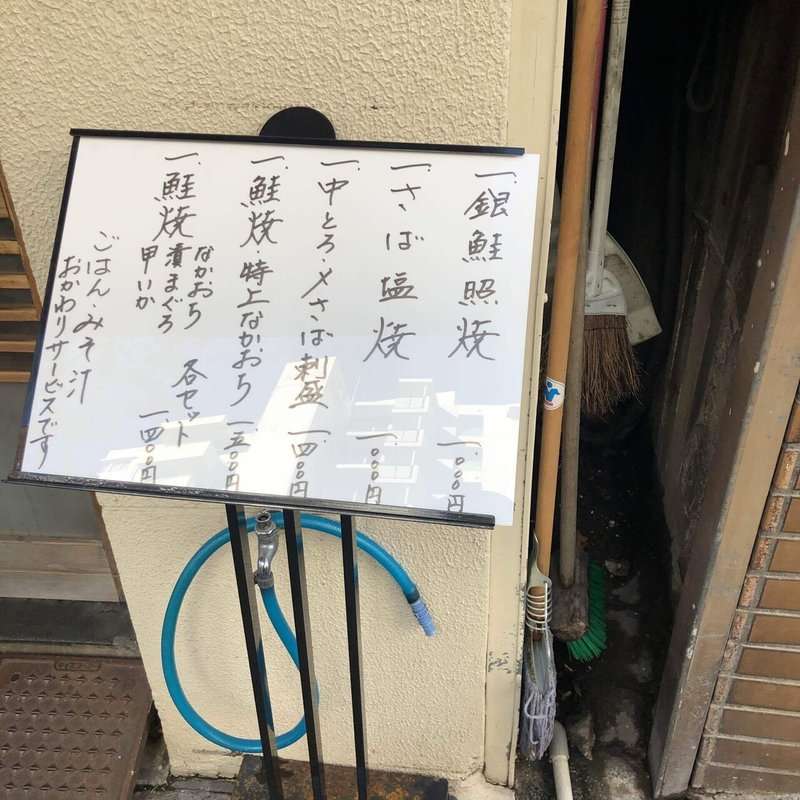 一. 銀鮭照焼 一.〇〇〇円
一. さば塩焼 一.〇〇〇円
一. 中とろ・〆さば刺盛 一.四〇〇円
一. 鮭焼 特上なかおち 一.五〇〇円
一. 鮭焼 なかおち
漬まぐろ 各セット 一.四〇〇円
甲いか
ごはん・みそ汁
おかわりサービスです